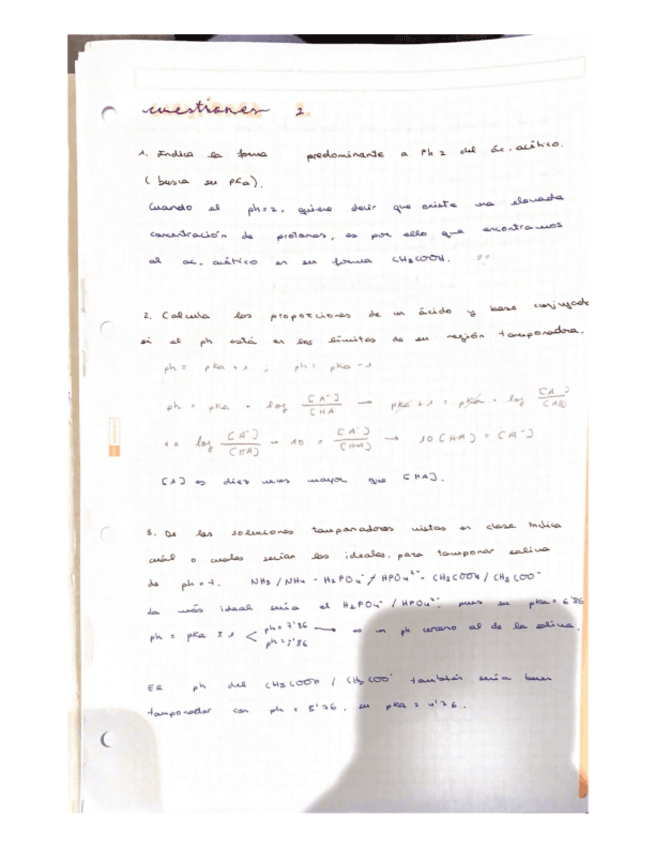 cuestiones 2
1. Indica la forma predominante a Ph 2 del ác. acético.
(busca su pKa).
Cuando el ph=2, quiere decir que existe una elevada
concentración de protones, es por ello que encontramos
al ac. acético en su forma CH3COOH. ??
2. Calcula las proporciones de un ácido y base conjugada
si el ph está en los límites de su región tamponadora.
ph = pka + 1 ; ph = pka - 1
ph = pka + log [A-]/[HA → pka + 1 = pka + log [A-]/[HA]
1 = log [A-]/[HA] → 10 = [A-]/[HA] → 10 [HA] = [A-]
[A] es diez veces mayor que [HA].
3. De las soluciones tamponadoras vistas en clase indica
cuál o cuales serían las ideales para tamponar saliva
de ph = 7. NH3 / NH4 - H2PO4- / HPO4 2- - CH3COOH / CH3COO-
La más ideal seria el H2PO4- / HPO4 2-, pues su pka = 6'86
ph = pka ± 1 < ph = 7'86 ph = 5'86 → es un ph cercano al de la saliva.
El ph del CH3COOH / CH3COO- también sería buen
tamponador con ph = 5'76, su pka = 4'76.